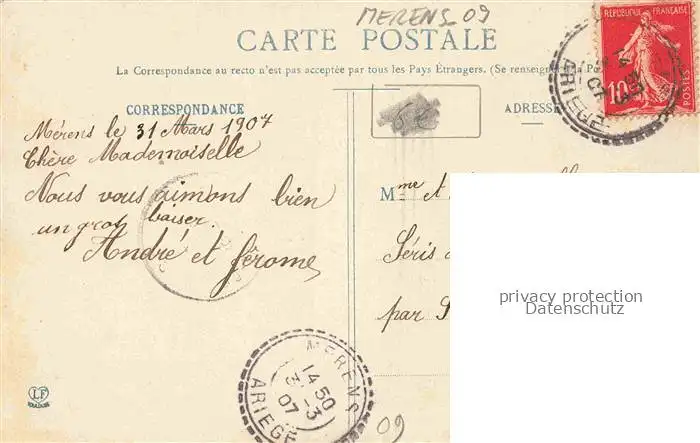 MERENS 09
CARTE POSTALE
La Correspondance au recto n'est pas acceptée par tous les Pays Étrangers. (Se renseigner à la P
CORRESPONDANCE
ADRESSE
RÉPUBLIQUE FRANÇAISE
10
POSTES
ARIEGE
Mérens le 31 Mars 1907
Chère Mademoiselle
Nous vous aimons bien
un gros baiser.
André et Jérome
Mme et
Séris
par S
privacy protection
Datenschutz
MERENS
14 50
3-3
07
ARIEGE
LF
TOULOUSE
09